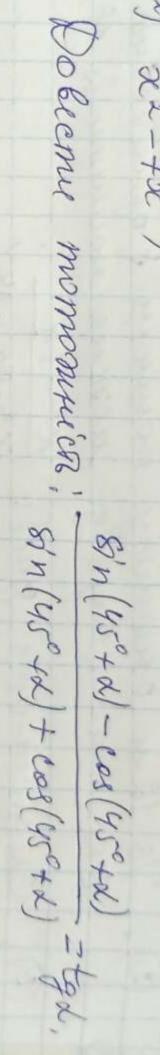 x² - 7x
Довести тотожність: (sin(45° + α) - cos(45° + α)) / (sin(45° + α) + cos(45° + α)) = tg α.